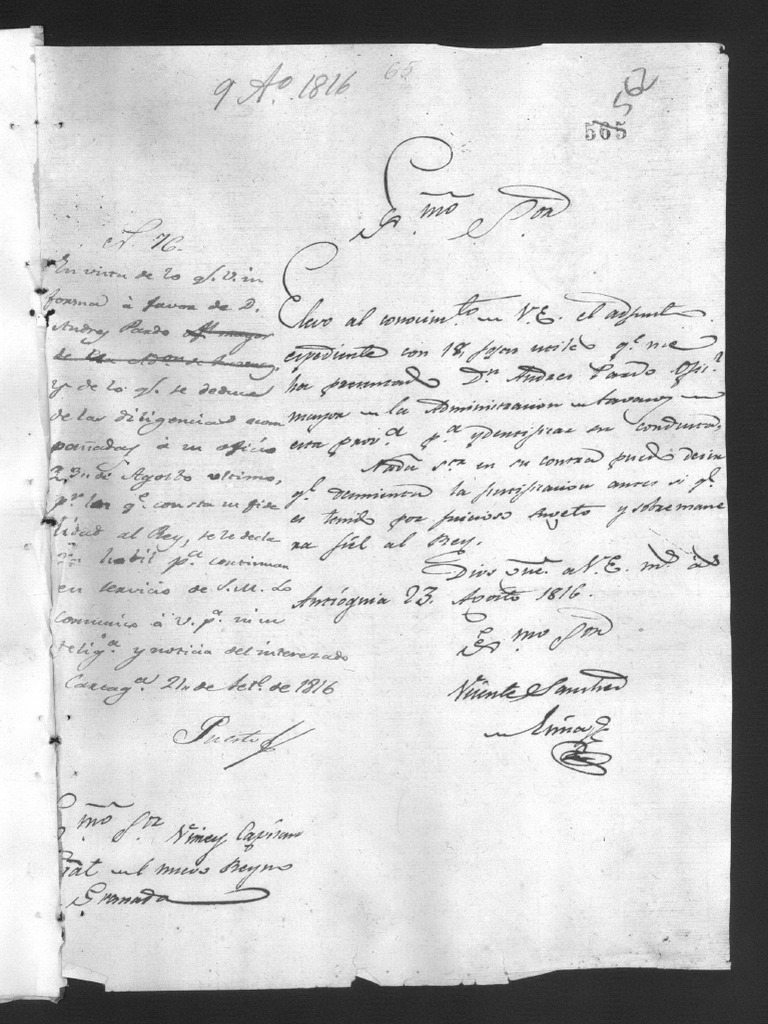 9 Ao. 1816
65
562
565
Exmo Sor
N. 76.
En vista de lo qe. V. in
forma à favor de D.
Andres Pardo ofl. mayor
de la Admon de
y de lo qe. se deduce
de las diligencias acom
pañadas à su oficio
23,, de Agosto ultimo,
pr. las qe. consta su fide
lidad al Rey, se le decla
ra habil pa. continuar
en servicio de S.M. Lo
comunico à V. pa. su in
teliga. y noticia del interezado
Cartaga. 21,, de Sete. de 1816
Puerto
Elevo al conocimto. de V.E. el adjunto
expediente con 18 fojas utiles qe. me
ha presentado Dn. Andres Pardo Ofic.l
mayor de la Administracion de tavacos de
esta prova. pa. ydentificar su conducta.
Nada Sor. en su contra puedo decir
qe. desmienta la justificacion antes si qe.
es tenido por juicioso sugeto y sobremane
ra fiel al Rey.
Dios gue. a V.E. ms. as.
Antioquia 23. Agosto 1816.
Exmo Sor
Vicente Sanchez
de Lima
Exmo Sor Virrey Capitan
Gral del nuevo Reyno
Granada